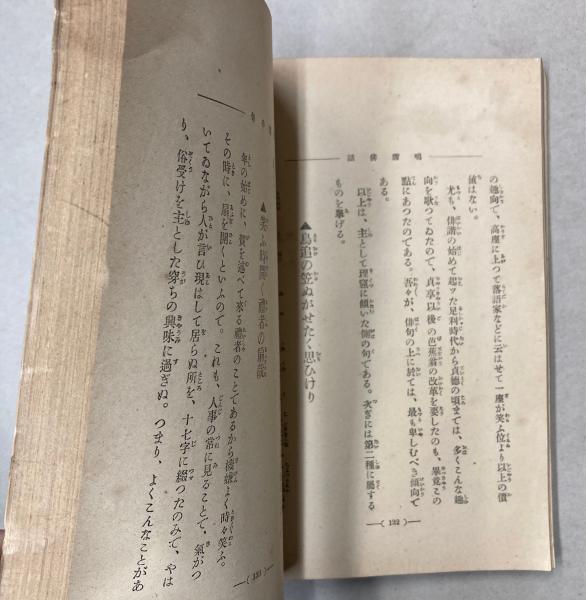 鳴雪俳話
の趣向で、高座に上つて落語家などに云はせて一座が笑ふ位より以上の價
値はない。
尤も、俳諧の始めて起ツた足利時代から貞德の頃までは、多くこんな趣
向を歌つてゐたので、貞享以後の芭蕉翁の改革を要したのも、畢竟この
點にあつたのである。吾々が、俳句の上に於ては、最も卑しむべき傾向で
ある。
以上は、主として理窟に傾いた側の句である。次ぎには第二種に屬する
ものを擧げる。
▲鳥追の笠ぬがせたく思ひけり
( 122 )
▲笑ふ時開く禮者の扇
年の始めに、賀を述べて來る禮者のことであるから機嫌よく時々笑ふ。
その時に、扇を開くといふので。これも、人事の常に見ることで、氣がつ
いてゐながら人が言ひ現はして居らぬ所を、十七字に綴つたのみで、やは
り、俗受けを主とした穿ちの興味に過ぎぬ。つまり、よくこんなことがあ
( 123 )